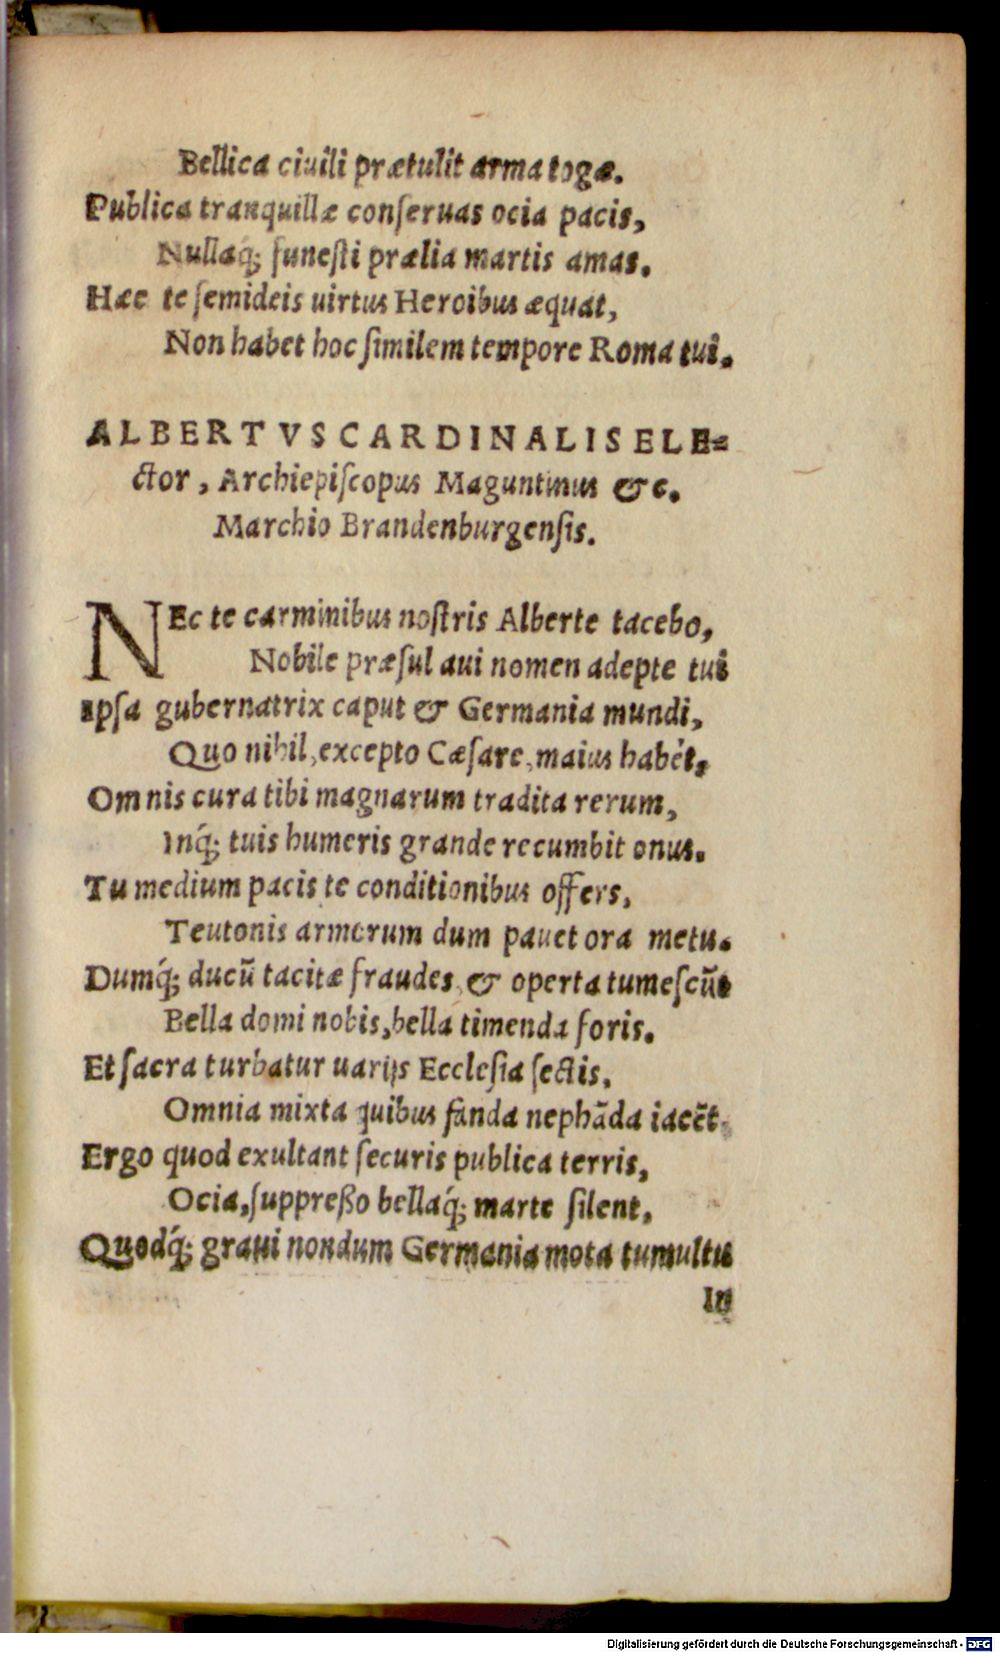 Bellica ciuili prætulit arma togæ.
Publica tranquillæ conſeruas ocia pacis,
Nullaq́; funeſti prælia martis amas.
Hæc te ſemideis uirtus Heroibus æquat,
Non habet hoc ſimilem tempore Roma tui.
ALBERTVS CARDINALIS ELE=
ctor, Archiepiſcopus Maguntinus &c.
Marchio Brandenburgenſis.
NEc te carminibus noſtris Alberte tacebo,
Nobile præſul aui nomen adepte tui
Ipſa gubernatrix caput & Germania mundi,
Quo nihil, excepto Cæſare, maius habét,
Omnis cura tibi magnarum tradita rerum,
Inq́; tuis humeris grande recumbit onus.
Tu medium pacis te conditionibus offers,
Teutonis armorum dum pauet ora metu.
Dumq́; ducũ tacitæ fraudes, & operta tumeſcũt
Bella domi nobis, bella timenda foris.
Et ſacra turbatur uarijs Eccleſia ſectis,
Omnia mixta quibus fanda nephãda iacẽt.
Ergo quod exultant ſecuris publica terris,
Ocia, ſuppreßo bellaq́; marte ſilent,
Quodq́; graui nondum Germania mota tumultu
In
Digitalisierung gefördert durch die Deutsche Forschungsgemeinschaft - DFG